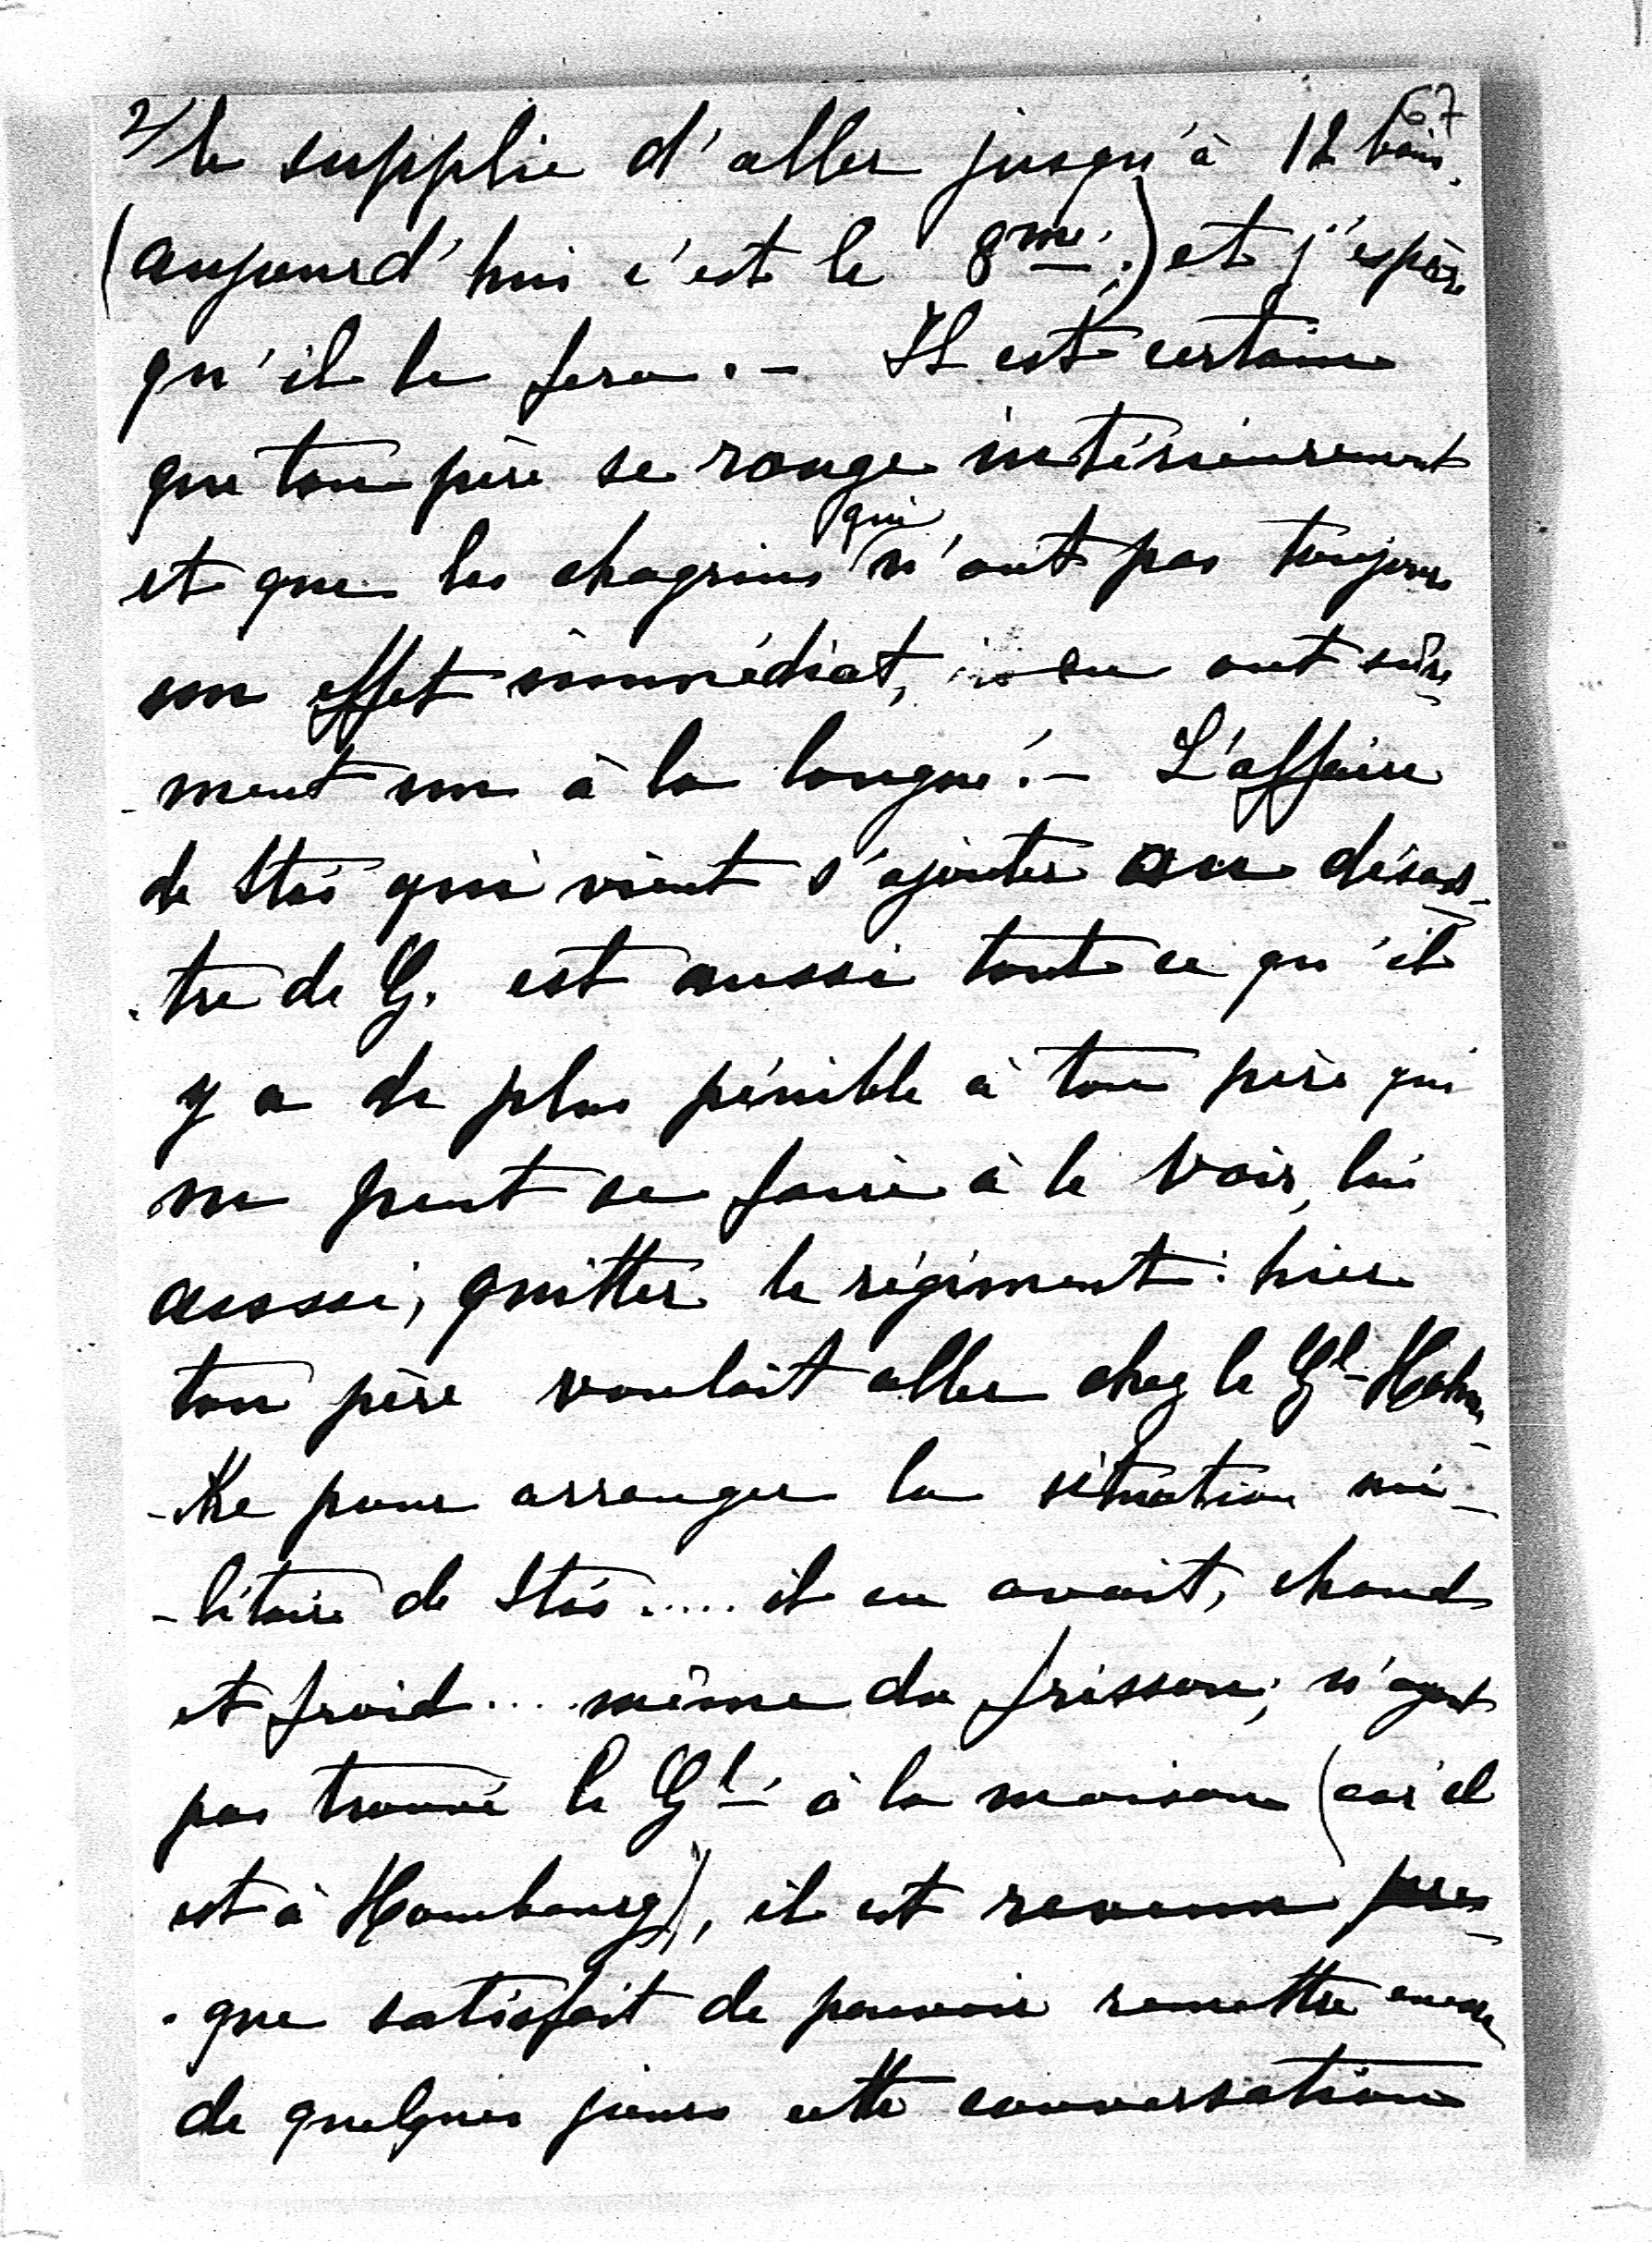 2/ le supplie d'aller jusqu'à 12 bains. 67
(aujourd'hui c'est le 8me.) et j'espère
qu'il le fera. – Il est certain
que ton père se ronge intérieurement
et que les chagrins qui n'ont pas toujours
un effet immédiat, en ont sûre-
-ment un à la longue! – L'affaire
de Stás qui vient s'ajouter au désas-
-tre de G. est aussi tout ce qu'il
y a de plus pénible à ton père qui
ne peut se faire à le voir, lui
aussi, quitter le régiment: hier
ton père voulait aller chez le Gl Hahn-
-ke pour arranger la situation mi-
-litaire de Stás..... il en avait, chaud
et froid.... même du frisson; n'ayant
pas trouvé le Gl à la maison (car il
est à Hombourg), il est revenu pres-
-que satisfait de pouvoir remettre encore
de quelques jours cette conversation